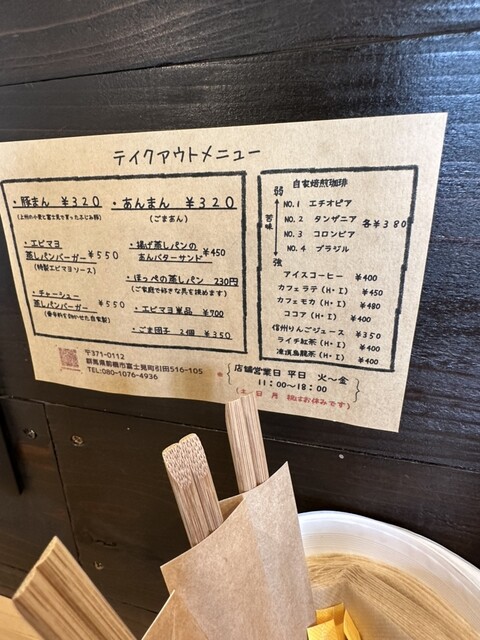 テイクアウトメニュー
・豚まん ¥320
・あんまん ¥320
(ごまあん)
・エビマヨ
蒸しパンバーガー ¥550
(特製エビマヨソース)
・チャーシュー
蒸しパンバーガー ¥550
・揚げ蒸しパンの
あんバターサンド ¥450
・ほっぺの蒸しパン 230円
(ご家庭で好きな具を挟めます)
・エビマヨ単品 ¥700
・ごま団子 2個 ¥350
自家焙煎珈琲
弱
苦味
強
NO.1 エチオピア
NO.2 タンザニア
NO.3 コロンビア
NO.4 ブラジル
各¥380
アイスコーヒー ¥400
カフェラテ(H・I) ¥450
カフェモカ(H・I) ¥480
ココア(H・I) ¥400
信州りんごジュース ¥350
ライチ紅茶(H・I) ¥400
凍頂烏龍茶(H・I) ¥400
〒371-0112
群馬県前橋市富士見町引田516-105
TEL:080-1076-4936
店舗営業日 平日 火〜金
11:00〜18:00
(土 日 月 祝はお休みです)